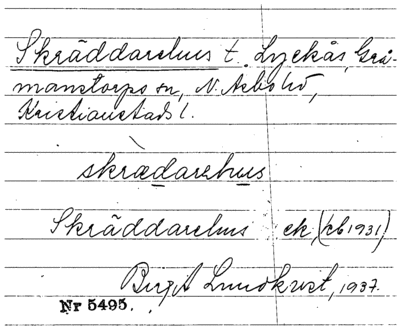 Skräddarehus t. Lyckås, Grå-
manstorps sn, N. Åsbo hd,
Kristianstads l.
skrædarehus
Skräddarehus ek (kb 1931)
Birgit Lundkvist, 1937.
Nr 5495.